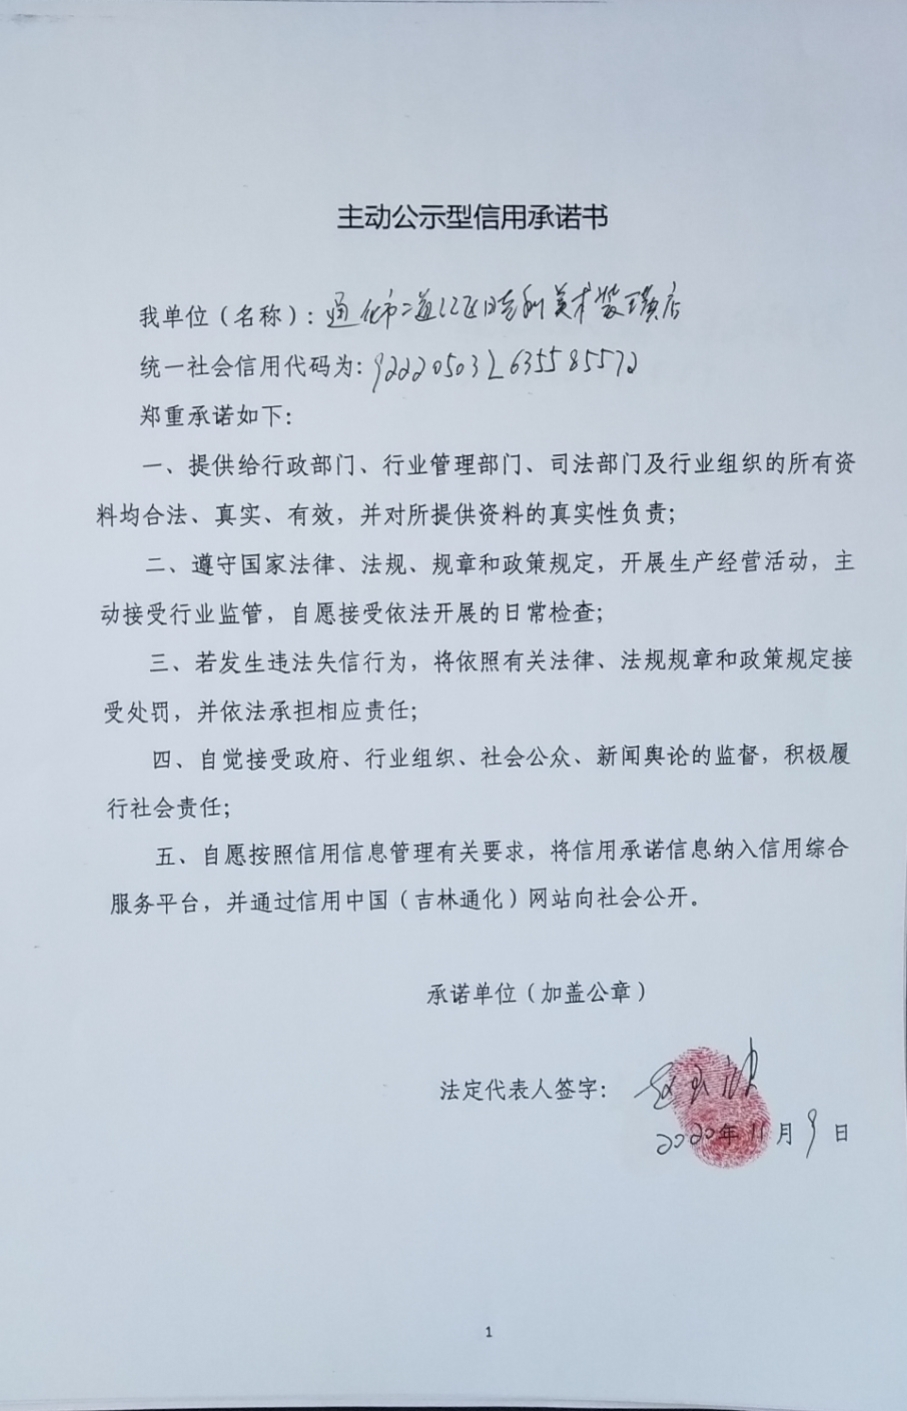 主动公示型信用承诺书
我单位（名称）：通化市二道江区日吉利美术装璜店
统一社会信用代码为：92220503L635585572
郑重承诺如下：
一、提供给行政部门、行业管理部门、司法部门及行业组织的所有资
料均合法、真实、有效，并对所提供资料的真实性负责；
二、遵守国家法律、法规、规章和政策规定，开展生产经营活动，主
动接受行业监管，自愿接受依法开展的日常检查；
三、若发生违法失信行为，将依照有关法律、法规规章和政策规定接
受处罚，并依法承担相应责任；
四、自觉接受政府、行业组织、社会公众、新闻舆论的监督，积极履
行社会责任；
五、自愿按照信用信息管理有关要求，将信用承诺信息纳入信用综合
服务平台，并通过信用中国（吉林通化）网站向社会公开。
承诺单位（加盖公章）
法定代表人签字：
2020年11月9日
1